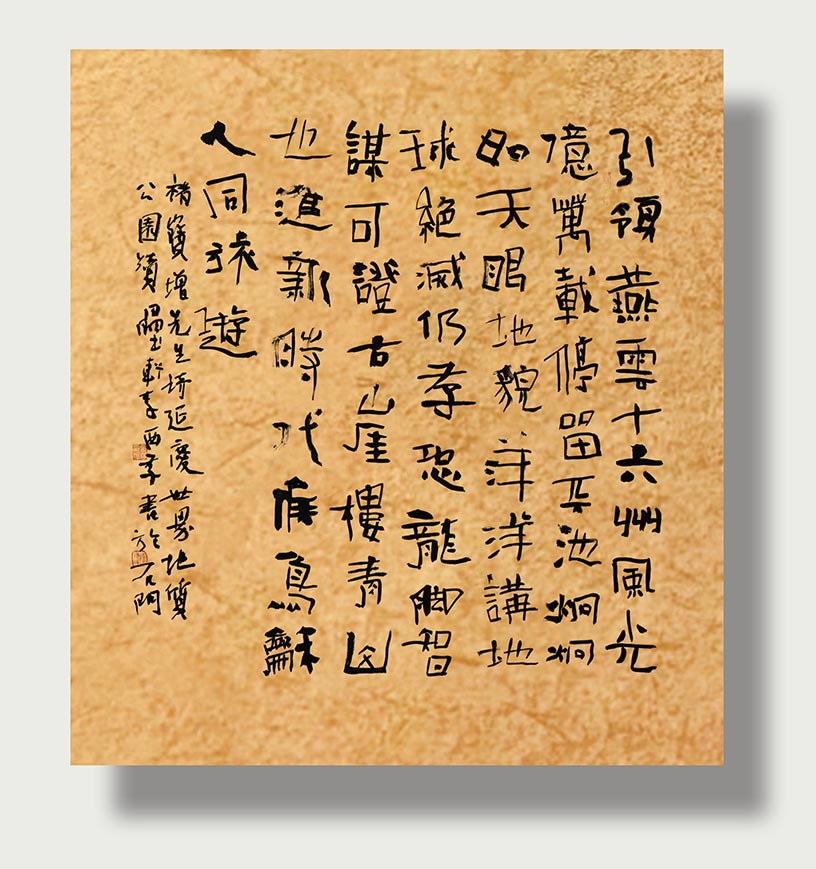 引領燕雲十六州風光
億萬載停留平池炯炯
如天眼地貌洋洋講地
球絕滅仍存恐龍腳智
謀可證古山崖樓青
也進新時代候鳥龢
人同旅遊
褚寶增先生詩延慶世界地質
公園頌 軒李西 書於石門